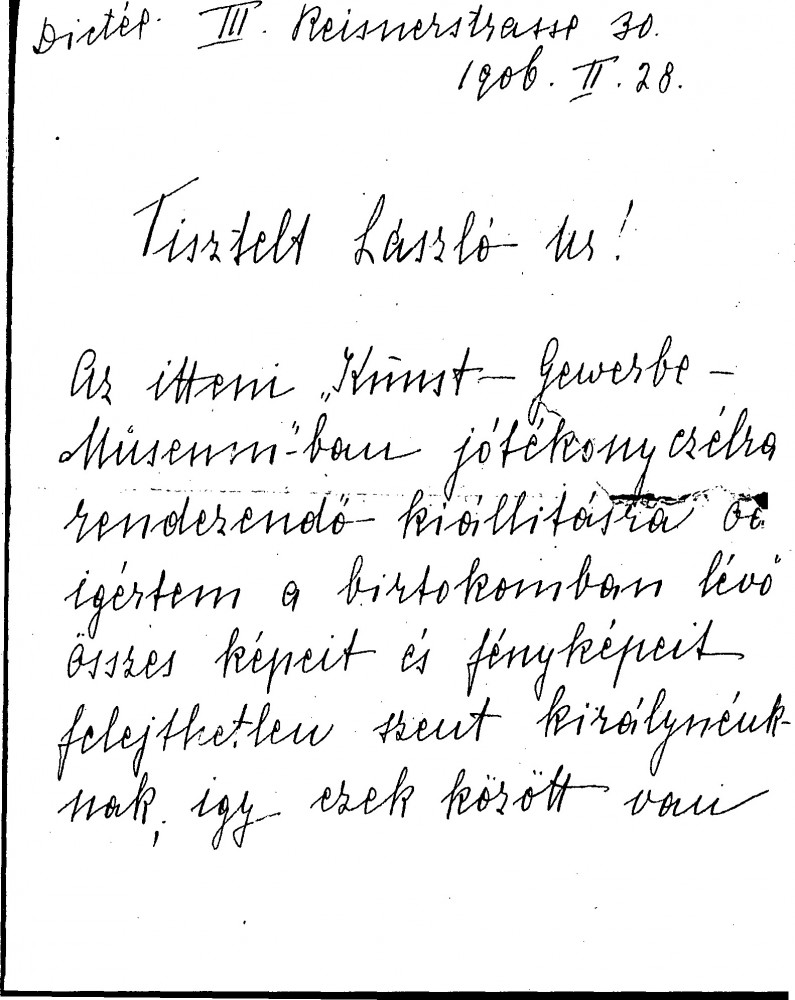 Dictée. III. Reisnerstrasse 30.
1906. II. 28.
Tisztelt László Ur!
Az itteni „Kunst- Gewerbe-
Museum"-ban jótékony czélra
rendezendő kiállitásra oda
igértem a birtokomban lévő
összes képeit és fényképeit
felejthetlen szent királynénk-
nak, igy ezek között van